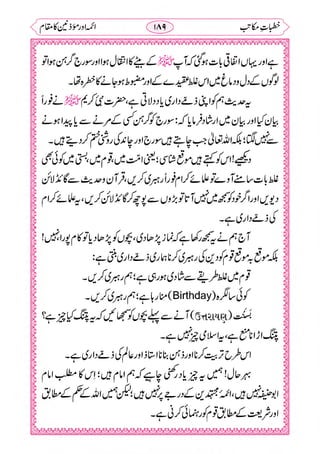 خطباتِ مکاتب ۱۸۹ ائمہ اور مؤذنین کا مقام
ہے اور یہاں اتفاقی بات ہوگئی کہ آپ ﷺ کے بیٹے کا انتقال ہوا اور سورج گرہن ہوا تو
لوگوں کے دل و دماغ میں اس غلط عقیدے کے اور مضبوط ہو جانے کا خطرہ تھا۔
یہ حدیث ہم کو اپنی ذمے داری یاد دلاتی ہے، حضرت نبی کریم ﷺ نے فوراً
بیان کیا اور بیان میں ارشاد فرمایا کہ: سورج گرہن کسی کے مرنے سے یا پیدا ہونے
سے نہیں لگتا؛ بلکہ اللہ تعالیٰ جب چاہتے ہیں سورج اور چاند کی روشنی ختم کر دیتے ہیں۔
دیکھیے! اس کو کہتے ہیں موقع شناسی؛ یعنی امت میں، قوم میں، بستی میں کوئی بھی
غلط بات سامنے آوے تو علمائے کرام فوراً رہبری کریں، قرآن و حدیث سے گائڈ لائن
دیویں اور اگر خود کو سمجھ میں نہیں آتا تو بڑوں سے پوچھ کر گائڈ لائن کریں، یہ علمائے کرام
کی ذمے داری ہے۔
آج ہم نے یہ سمجھ رکھا ہے کہ نماز پڑھا دی، بچوں کو پڑھا دیا تو کام پورا، نہیں!
بلکہ موقع بہ موقع قوم کو دین کی رہبری کرنا ہماری ذمے داری بنتی ہے:
قوم میں غلط طریقے سے شادی ہو رہی ہے؛ ہم رہبری کریں۔
کوئی سالگرہ (Birthday) منا رہا ہے؛ ہم رہبری کریں۔
بسنت (ઉત્તરાયણ) آنے سے پہلے بچوں کو سمجھائیں کہ یہ پتنگ کیا چیز ہے؟
پتنگ اڑانا منع ہے، یہ اسلامی چیز نہیں ہے۔
اس طرح تربیت کرنا اور ذہن بنانا استاذ اور عالم کی ذمے داری ہے۔
بہر حال! ہمیں یہ چیز یاد رکھنی چاہیے کہ ہم امام ہیں؛ اس امام کا مطلب امام
ابوحنیفہ نہیں ہے، ائمۂ مجتہدین کے درجے پر نہیں ہیں؛ لیکن ہمیں اللہ کے حکم کے مطابق
اور شریعت کے مطابق قوم کو رہنمائی کرنی ہے۔